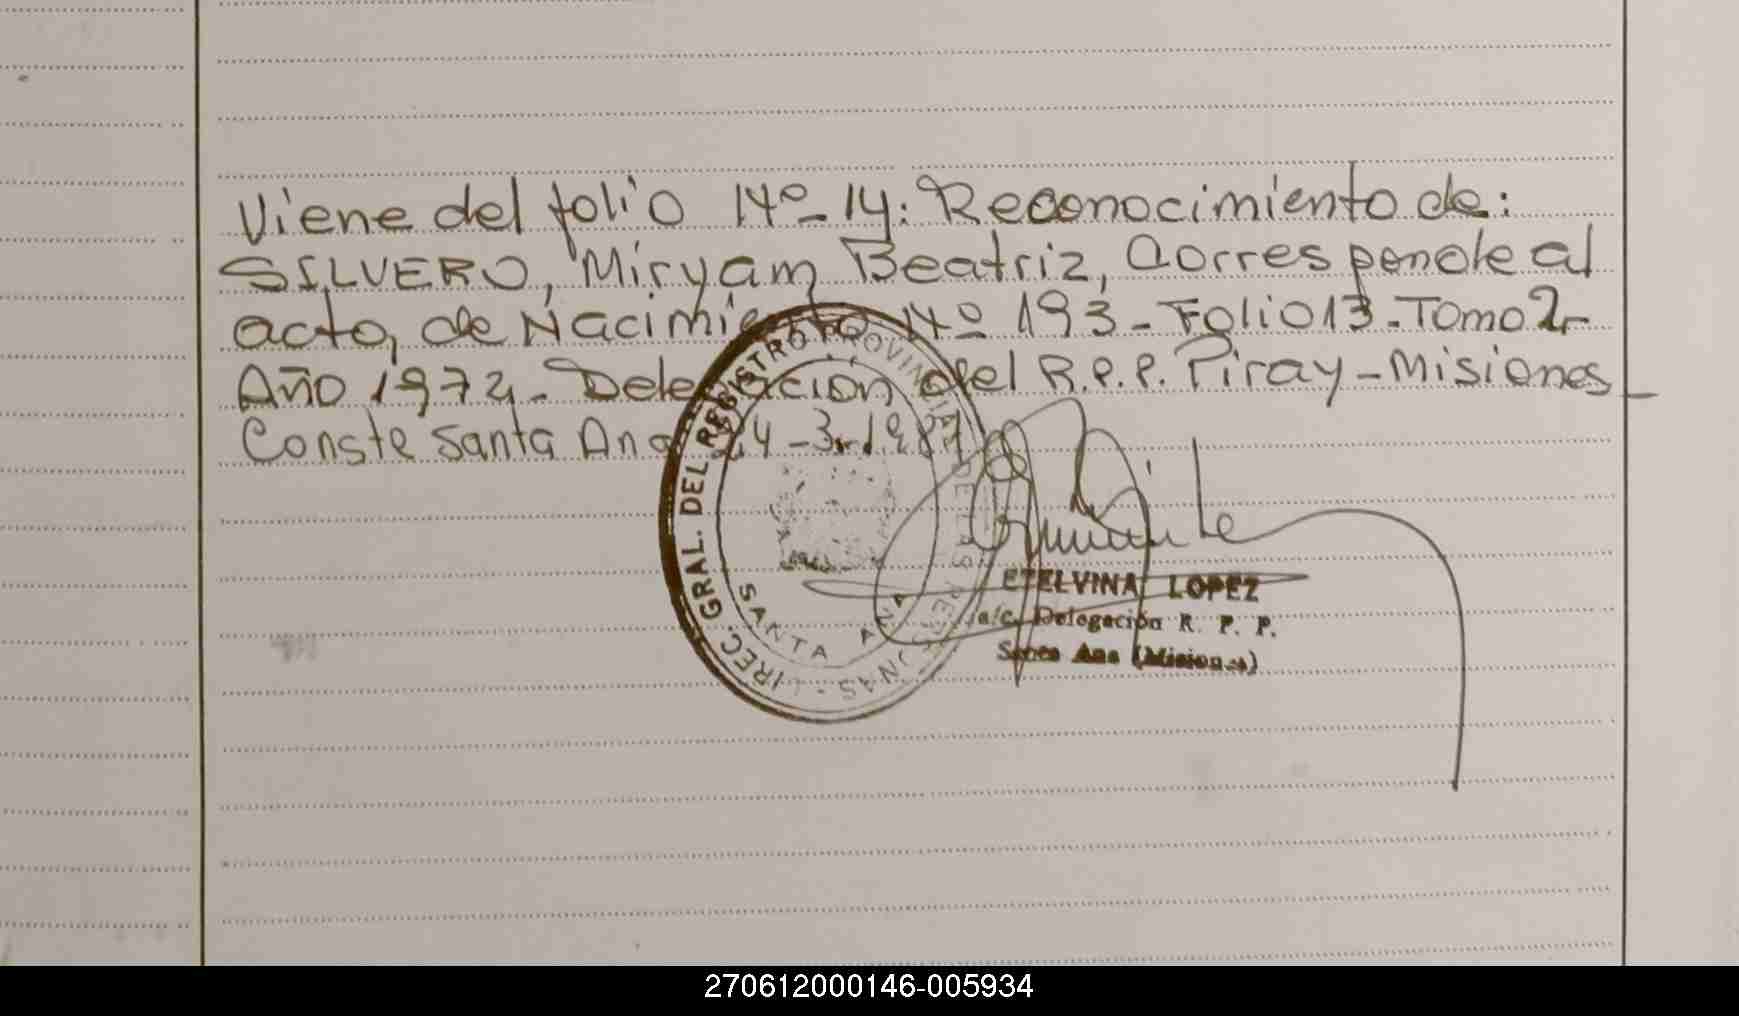 Viene del folio Nº-14: Reconocimiento de:
SILVERO, Miryam Beatriz, Corresponde al
acto, de Nacimiento Nº 193-Folio 13-Tomo 2-
Año 1972- Delegación del R.P.P. Piray-Misiones-
Conste Santa Ana 24-3-1987
DIREC. GRAL. DEL REGISTRO PROVINCIAL DE LAS PERSONAS
SANTA ANA
ETELVINA LOPEZ
a/c. Delegación R. P. P.
Santa Ana (Misiones)
270612000146-005934